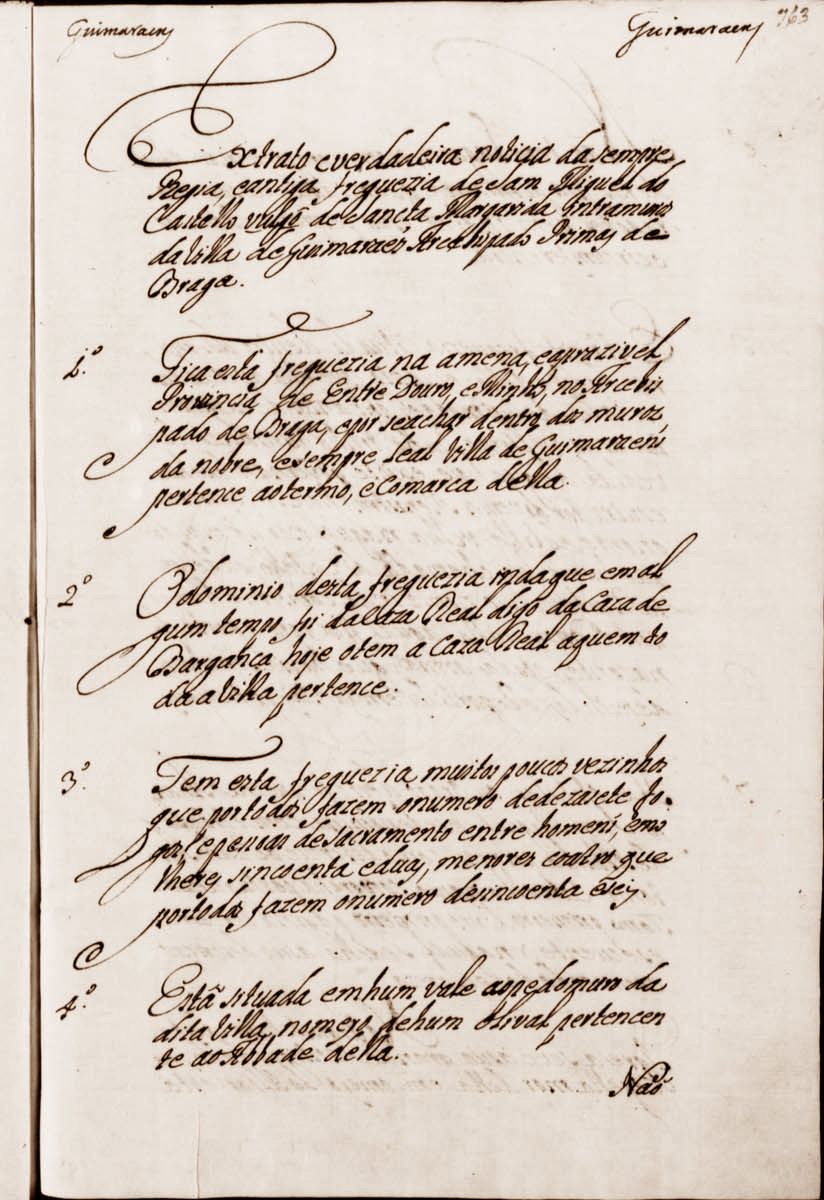 Guimaraens
Guimaraens
763
Extrato e verdadeira noticia da sempre
Regia, e antiga freguezia de Sam Miguel do
Castello vulgo de Sancta Margarida intramuros
da Villa de Guimaraens Arcebispado Primas de
Braga.
1.º
Fica esta freguezia na amena, e aprazivel
Provincia de Entre Douro, e Minho, no Arcebis
pado de Braga, e por se achar dentro dos muros
da nobre, e sempre Leal Villa de Guimaraens
pertence ao termo, e Comarca della.
2º
O dominio desta freguezia inda que em al
gum tempo foi da Caza Real digo da Caza de
Bargança hoje o tem a Caza Real a quem to
da a Villa pertence.
3º
Tem esta freguezia muitos poucos vezinhos
que por todos fazem o numero de dezasete fo
gos, e pessoas de sacramento entre homens, e mo
lheres sincoenta e duas, menores coatro que
por todos fazem o numero de sincoenta e seis.
4.º
Está situada em hum vale ao pe do muro da
dita Villa, no mero de hum olival pertencen
te ao Abbade della.
Não